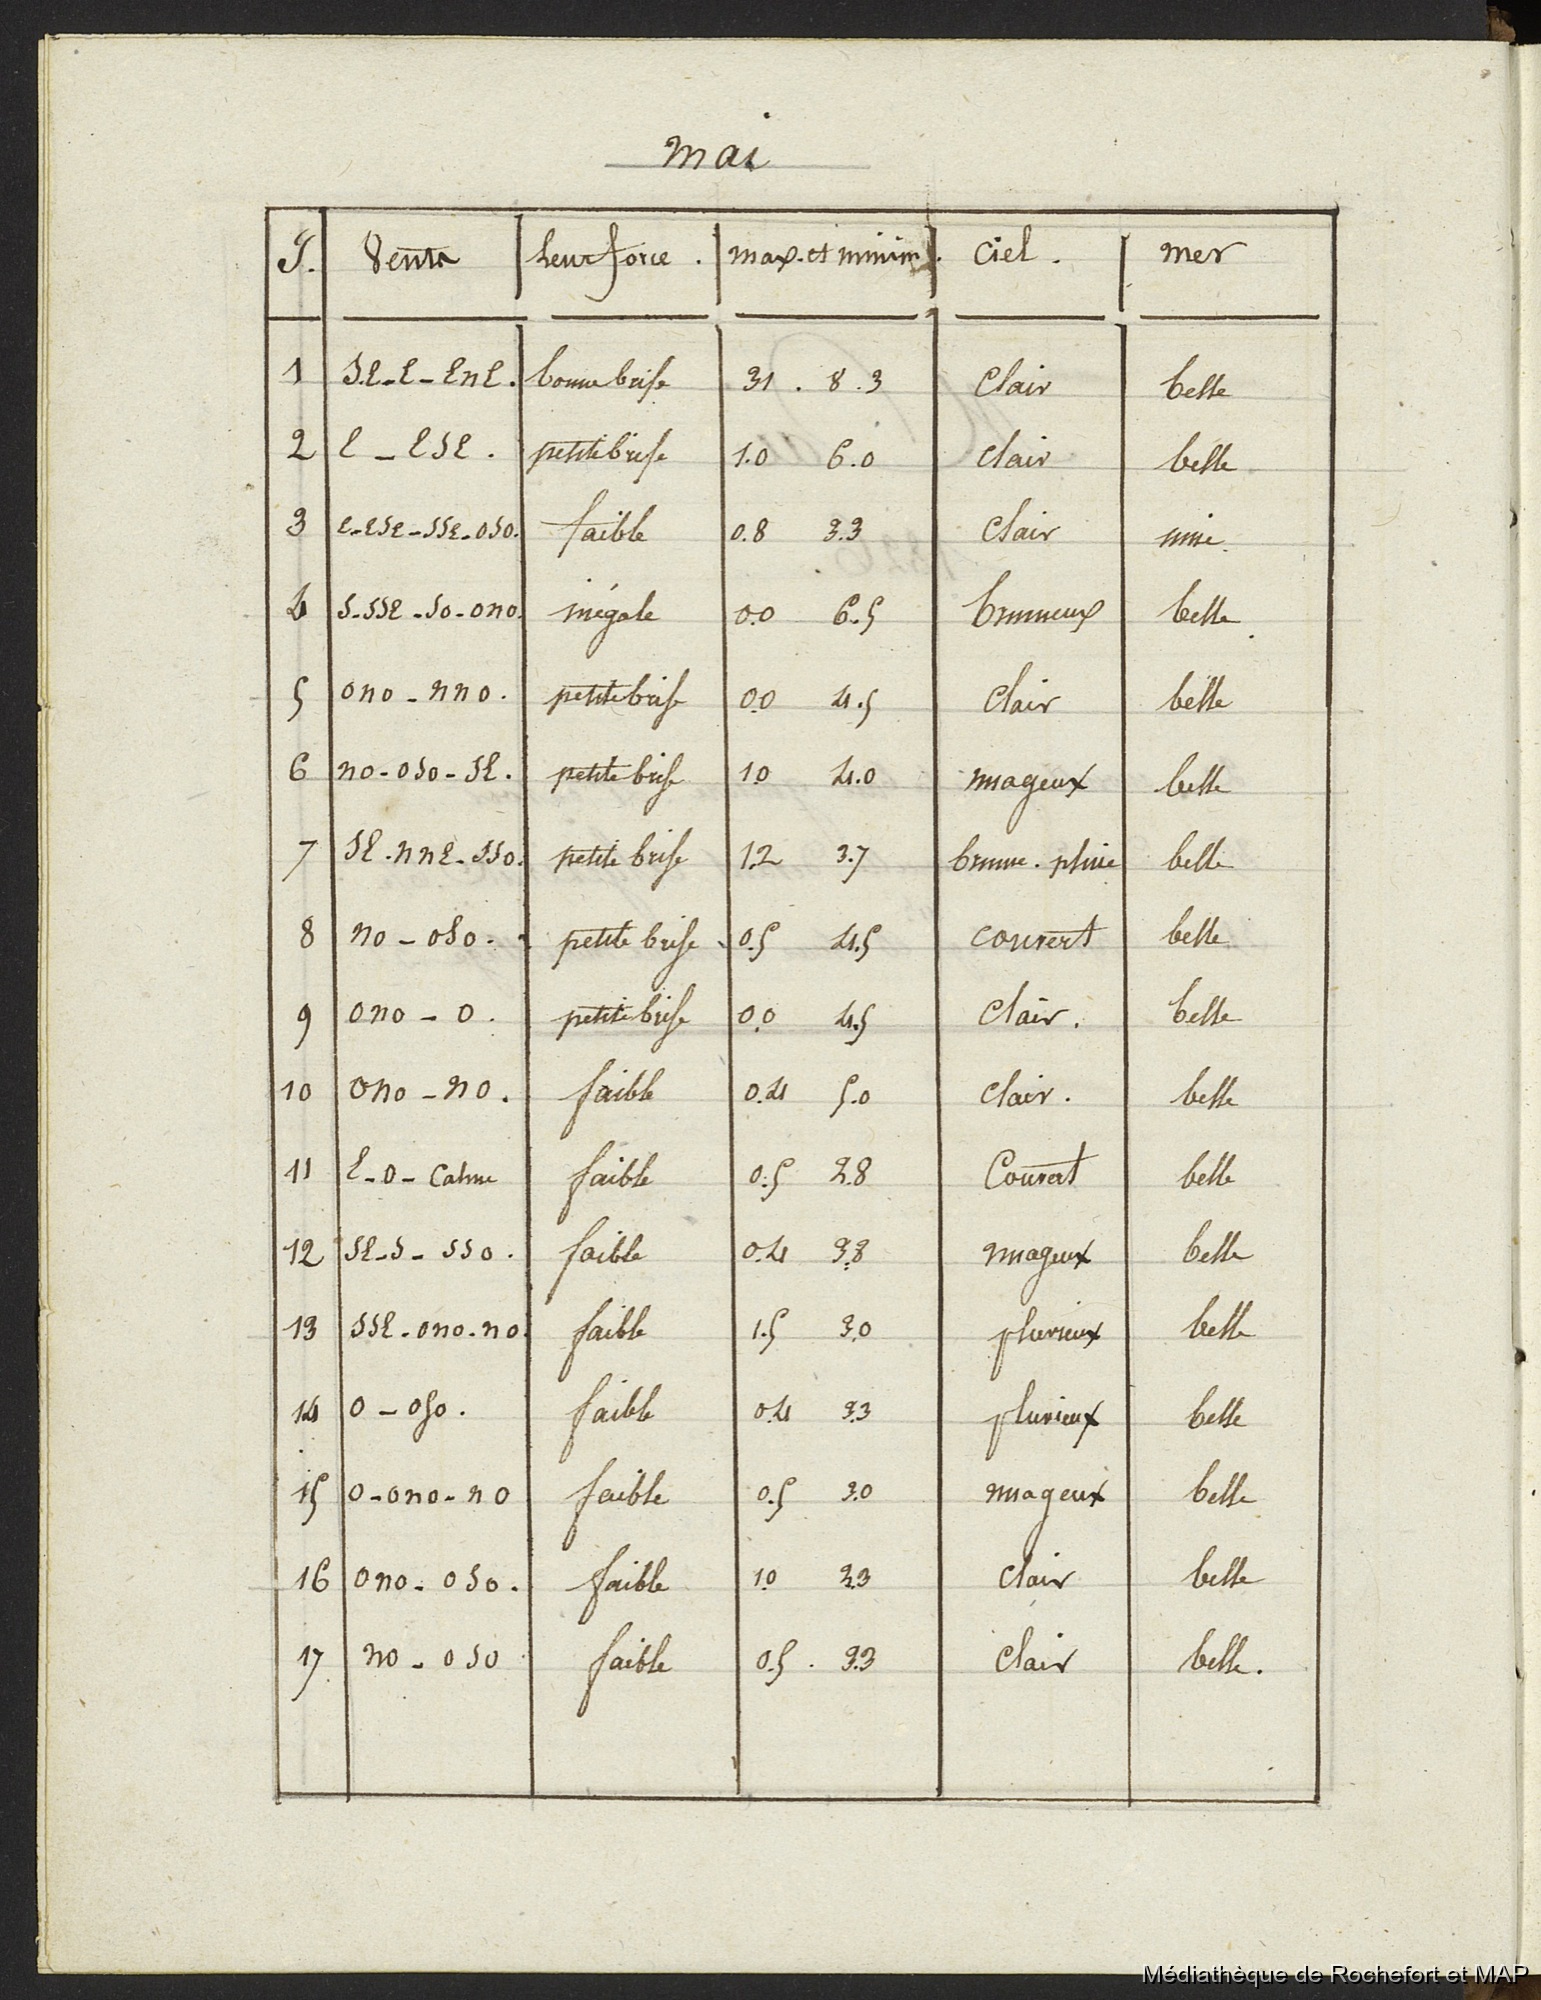 mai
J. Vents leur force. max. et minim. Ciel. mer
1 SE-E-ENE. bonne brise 31. 8.3 Clair belle
2 E-ESE. petite brise 1.0 6.0 clair belle
3 E-ESE-SSE-OSO. faible 0.8 3.3 Clair unie.
4 S-SSE-SO-ONO. inégale 0.0 6.5 brumeux belle.
5 ONO-NNO. petite brise 0.0 4.5 Clair belle
6 NO-OSO-SE. petite brise 1.0 4.0 nuageux belle
7 SE.NNE-SSO. petite brise 1.2 3.7 brume. pluie belle
8 NO-OSO. petite brise 0.5 4.5 couvert belle
9 ONO-O. petite brise 0.0 4.5 Clair. belle
10 ONO-NO. faible 0.4 5.0 clair. belle
11 E-O-Calme faible 0.5 2.8 Couvert belle
12 SE-S-SSO. faible 0.4 3.8 nuageux belle
13 SSE-ONO-NO. faible 1.5 3.0 pluvieux belle
14 O-OSO. faible 0.4 3.3 pluvieux belle
15 O-ONO-NO faible 0.5 3.0 nuageux belle
16 ONO-OSO. faible 1.0 2.3 clair belle
17 NO-OSO faible 0.5. 3.3 clair belle.
Médiathèque de Rochefort et MAP